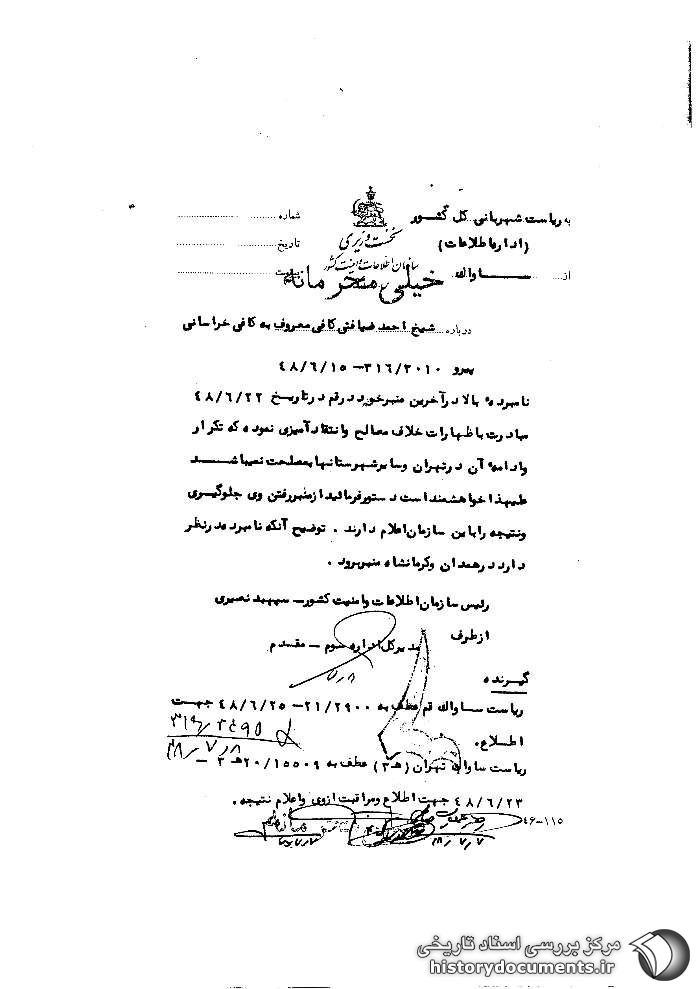 به ریاست شهربانی کل کشور
(اداره اطلاعات)
از ساواك
شماره
تاریخ
پیوست
نخست وزیری
سازمان اطلاعات و امنیت کشور
خیلی محرمانه
درباره شیخ احمد ضیافتی کافی معروف به کافی خراسانی
پیرو ۳۱۶/۳۰۱۰ – ۴۸/۶/۱۵
نامبرده بالا در آخرین منبر خود در قم در تاریخ ۴۸/۶/۲۲
مبادرت باظهارات خلاف مصالح وانتقاد آمیزی نموده که تکرار
وادامه آن در تهران وسایر شهرستانها بمصلحت نمیباشد
علیهذا خواهشمند است دستور فرمائید از منبر رفتن وی جلوگیری
ونتیجه را باین سازمان اعلام دارند . توضیح آنکه نامبرده در نظر
دارد در همدان وکرمانشاه منبر برود .
رئیس سازمان اطلاعات وامنیت کشور – سپهبد نصیری
از طرف
مدیر کل اداره سوم – مقدم
۷/۸
گیرنده
ریاست ساواك قم عطف به ۲۱/۲۹۰۰ – ۴۸/۶/۲۵ جهت
اطلاع.
۳۱۶/۳۴۹۵
۴۸/۷/۸
ریاست ساواك تهران (ه‍ ۳) عطف به ۲۰/۱۵۵۰۹ ه‍ ۳ –
۴۸/۶/۲۳ جهت اطلاع ومراقبت ازوی واعلام نتیجه .
۴۶-۱۱۵
۴۸/۷/۷
مرکز بررسی اسناد تاریخی
historydocuments.ir